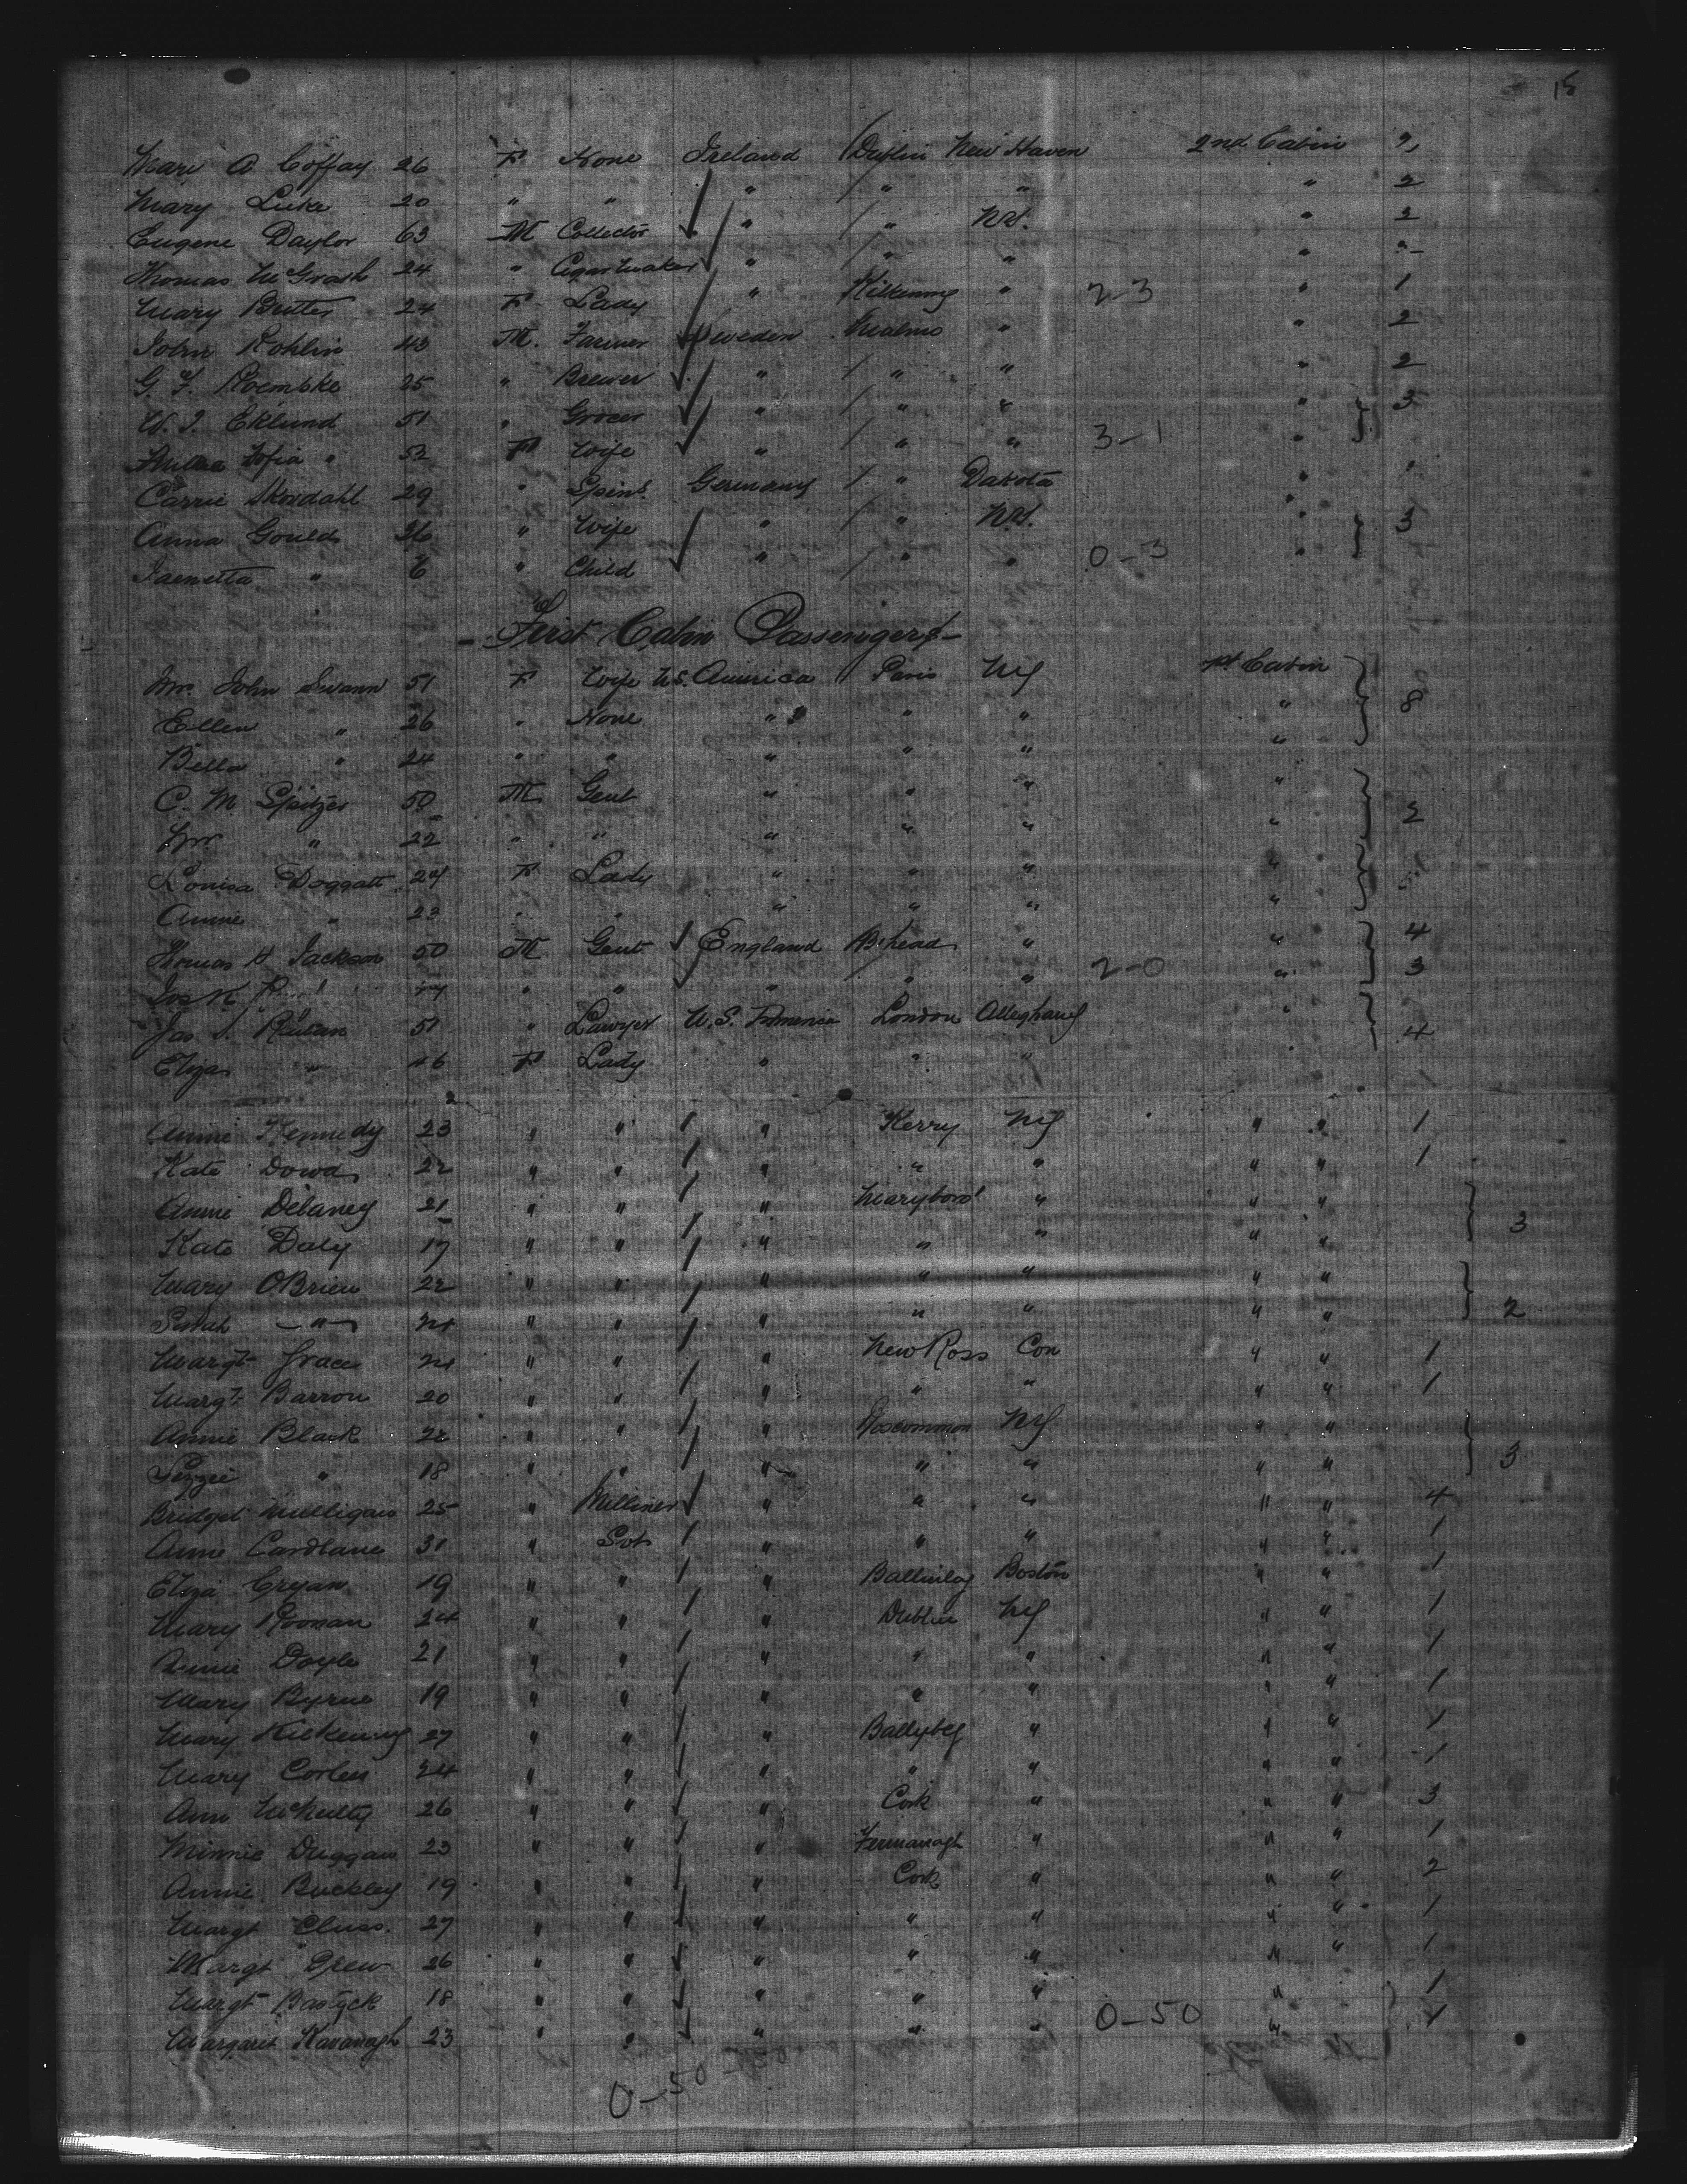 15
Mary A Coffay 26 F None Ireland Dublin New Haven 2nd Cabin 2
Mary Luke 20 " " " " " " 2
Eugene Daylor 63 M Collector " " NY. " 2
Thomas McGrath 24 " Cigar Maker " " " "
Mary Butter 24 F Lady " Kilkenny " 2-3 " 1
John Kohlin 43 M. Farmer Sweden Malmo " " 2
G. F. Roempke 25 " Brewer " " " " 2
Eklund 51 " Grocer " " " " 3
Sofia " 52 F Wife " " " 3-1 "
Carrie Skordahl 29 " Spinr. Germany " Dakota "
Anna Gould 26 " Wife " " NY. " 3
" 6 " Child " " " 0-3 "
- First Cabin Passengers -
Mrs. John Swann 51 F Wife U.S. America Paris NY 1st Cabin 8
Ellen " 26 " None " " " "
Bella " 24 " " " " " "
C. M. Spitzer 50 M Gent " " " " 2
" 22 " " " " " "
Louisa Doggatt 24 F Lady " " " "
Annie " 23 " " " " " "
Thomas H Jackson 50 M Gent England B'head " " 4
" " " " " 2-0 " 3
Jas. 51 " Lawyer U.S. London Alleghany " 4
Eliza " 46 F Lady " " " "
Annie Kennedy 23 " " " Kerry NY " " 1
Kate Dowd 22 " " " " " " " 1
Annie Delaney 21 " " " Maryboro' " " "
Kate Daly 17 " " " " " " " 3
Mary OBrien 22 " " " " " " "
Sarah — " — 24 " " " " " " " 2
Margt Grace 24 " " " New Ross Con " " 1
Margt. Barron 20 " " " " " " " 1
Annie Black 22 " " " Roscommon NY " "
Lizzie " 18 " " " " " " " 3
Bridget Mulligan 25 " Milliner " " " " " 4
Anne Cardlane 31 " Svt " " " " " 1
Eliza Cryan 19 " " " Ballinlog Boston " " 1
Mary Noonan 24 " " " Dublin NY " " 1
Annie Doyle 21 " " " " " " " 1
Mary Byrne 19 " " " " " " " 1
Mary Kilkenny 27 " " " Ballybeg " " " 1
Mary Corlen 24 " " " " " " " 1
Ann McNulty 26 " " " Cork " " " 3
Minnie Duggan 23 " " " Fermanagh " " " 1
Annie Buckley 19 " " " Cork " " " 2
Margt 27 " " " " " " " 1
Margt Drew 26 " " " " " " " 1
Margt 18 " " " " " " 1
Margaret Kavanagh 23 " " " " " 0-50 " 1
0-50